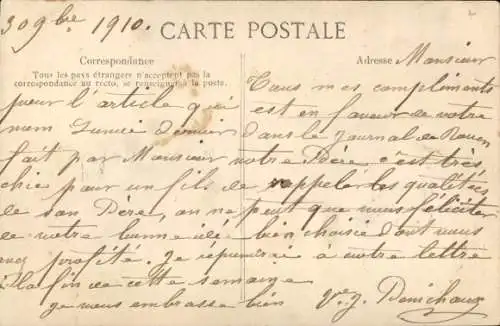 30 9bre 1910.
CARTE POSTALE
Correspondance
Tous les pays étrangers n'acceptent pas la
correspondance au recto, se renseigner à la poste.
Adresse
Monsieur
Tous mes compliments
pour l'article qui
est en faveur de votre
dans le Journal de Rouen
fait par Monsieur votre Père c'est très
chic pour un fils de rappeler les qualitées
de son Père, on ne peut que vous féliciter
de votre bonne idée bien choisie dont vous
profité. Je répondrai à votre lettre
à la fin de cette semaine
je vous embrasse bien
Vve J. Denichaux